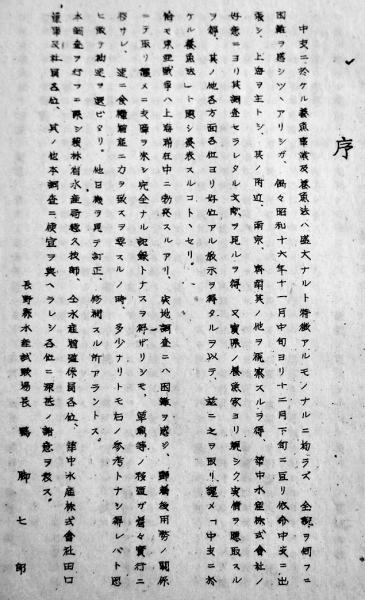 序
中支ニ於ケル養魚事業及養魚法ハ盛大ナルト特徴アルモノナルニ拘ラズ 全貌ヲ伺フニ
困難ヲ感ジツヽアリシガ、偶々昭和十六年十一月中旬ヨリ十二月下旬ニ亘リ依命中支ニ出
張シ、上海ヲ主トシ、其ノ附近、南京、其ノ他ヲ視察スルヲ得、華中水産株式會社ノ
好意ニヨリ其調査セラレタル文献ヲ見ルヲ得、又實際ノ養魚家ヨリ親シク實情ヲ聴取スル
ヲ得、其ノ他各方面各位ヨリ好位アル教示ヲ得タルヲ以テ、茲ニ之ヲ取リ纒メ「中支ニ於
ケル養魚法」ト題シ発表スルコトヽセリ。
恰モ東亜戦争ハ上海滞在中ニ勃発スルアリ、実地調査ニハ困難ヲ感ジ、歸着後用務ノ關係
ニテ取リ纒メニ支障ヲ来シ完全ナル記録トナスヲ得ザリシモ、草魚等ノ移殖ガ着々實行ニ
移サレ、逆ニ食糧増産ニ力ヲ致スヲ要スルノ時、多少ナリトモ右ノ参考トナシ得レバト思
ヒ敢テ拙速ヲ選ビタリ。他日機ヲ見テ訂正、修補スル所アラントス。
本調査ヲ行フニ際シ農林省水産局 技師、仝水産増殖係員各位、華中水産株式會社田口
董事及社員各位、其ノ他本調査ニ便宜ヲ與ヘラレシ各位ニ深甚ノ謝意ヲ表ス。
長野縣水産試験場長 鴨脚七郎